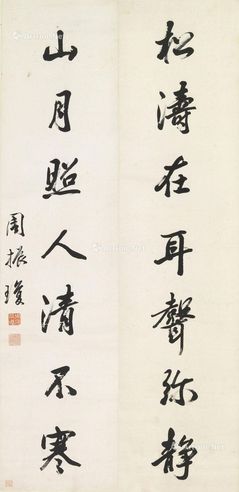 松濤在耳聲弥静
山月照人清不寒
周振瓊